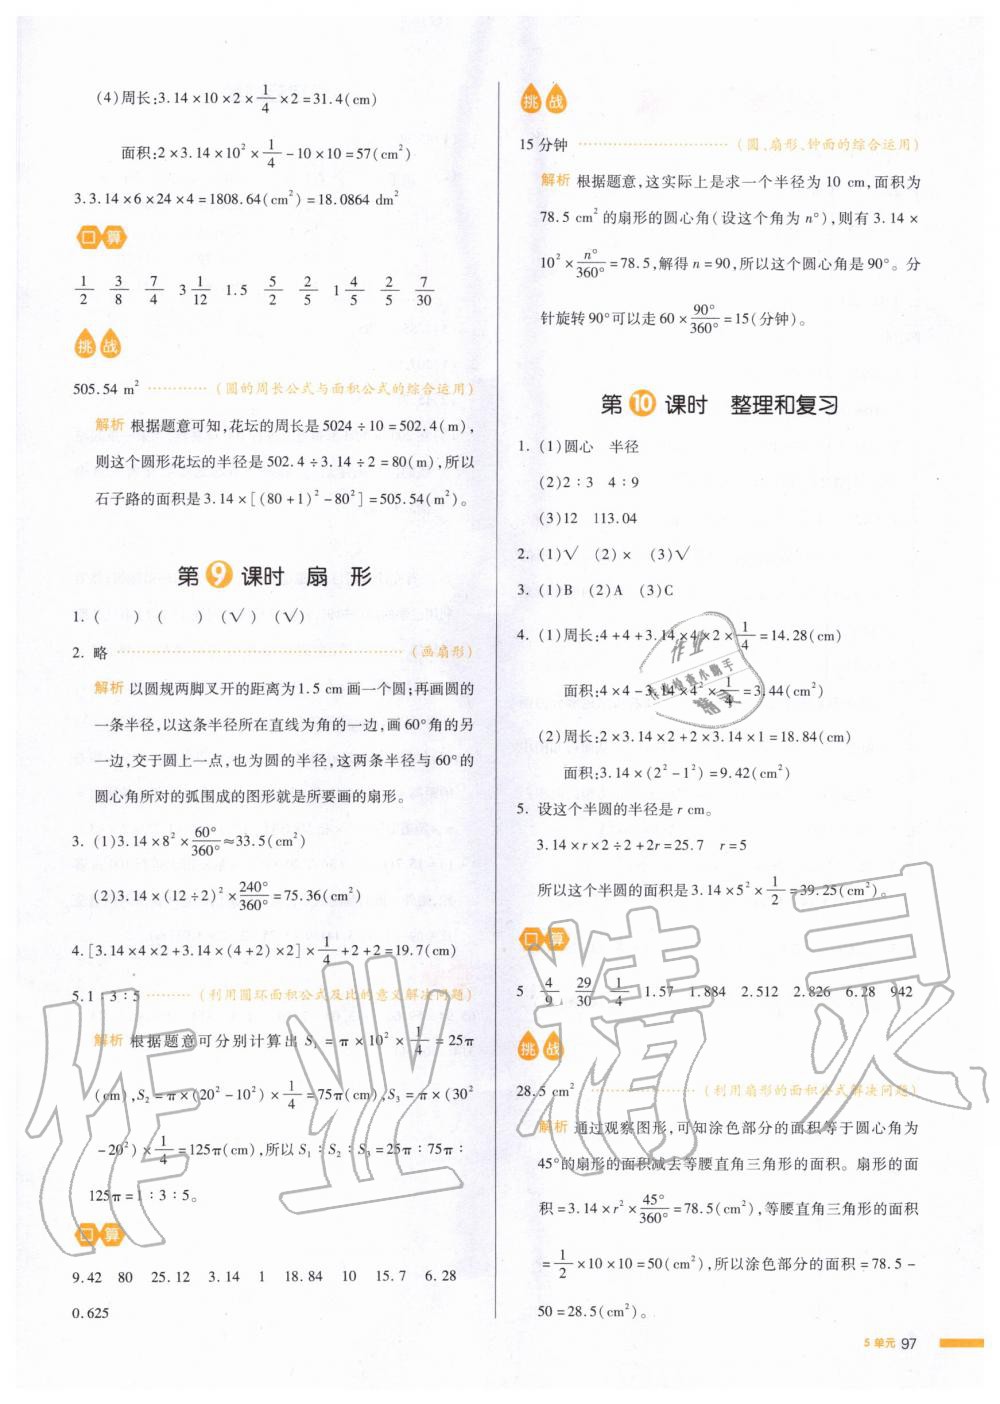 (4)周长:3.14×10×2×1/4×2=31.4(cm)
面积:2×3.14×10²×1/4-10×10=57(cm²)
3.3.14×6×24×4=1808.64(cm²)=18.0864 dm²
口算
1/2 3/8 7/4 3 1/12 1.5 5/2 2/5 1 4/5 2/5 7/30
挑战
505.54 m² ············(圆的周长公式与面积公式的综合运用)
解析 根据题意可知,花坛的周长是5024÷10=502.4(m),
则这个圆形花坛的半径是502.4÷3.14÷2=80(m),所以
石子路的面积是3.14×[(80+1)²-80²]=505.54(m²)。
第9课时 扇 形
1.( ) ( ) (√) (√)
2. 略 ············(画扇形)
解析 以圆规两脚叉开的距离为1.5 cm画一个圆;再画圆的
一条半径,以这条半径所在直线为角的一边,画60°角的另
一边,交于圆上一点,也为圆的半径,这两条半径与60°的
圆心角所对的弧围成的图形就是所要画的扇形。
3. (1)3.14×8²×60°/360°≈33.5(cm²)
(2)3.14×(12÷2)²×240°/360°=75.36(cm²)
4.[3.14×4×2+3.14×(4+2)×2]×1/4+2+2=19.7(cm)
5.1∶3∶5 ·········(利用圆环面积公式及比的意义解决问题)
解析 根据题意可分别计算出 S₁=π×10²×1/4=25π
(cm),S₂=π×(20²-10²)×1/4=75π(cm),S₃=π×(30²
-20²)×1/4=125π(cm),所以 S₁∶S₂∶S₃=25π∶75π∶
125π=1∶3∶5。
口算
9.42 80 25.12 3.14 1 18.84 10 15.7 6.28
0.625
挑战
15分钟 ············(圆、扇形、钟面的综合运用)
解析 根据题意,这实际上是求一个半径为10 cm,面积为
78.5 cm²的扇形的圆心角(设这个角为n°),则有3.14×
10²×n°/360°=78.5,解得n=90,所以这个圆心角是90°。分
针旋转90°可以走60×90°/360°=15(分钟)。
第10课时 整理和复习
1. (1)圆心 半径
(2)2∶3 4∶9
(3)12 113.04
2. (1)√ (2)× (3)√
3. (1)B (2)A (3)C
4. (1)周长:4+4+3.14×4×2×1/4=14.28(cm)
面积:4×4-3.14×4²×1/4=3.44(cm²)
(2)周长:2×3.14×2+2×3.14×1=18.84(cm)
面积:3.14×(2²-1²)=9.42(cm²)
5. 设这个半圆的半径是r cm。
3.14×r×2÷2+2r=25.7 r=5
所以这个半圆的面积是3.14×5²×1/2=39.25(cm²)。
口算
5 4/9 29/30 1/4 1.57 1.884 2.512 2.826 6.28 942
挑战
28.5 cm² ············(利用扇形的面积公式解决问题)
解析 通过观察图形,可知涂色部分的面积等于圆心角为
45°的扇形的面积减去等腰直角三角形的面积。扇形的面
积=3.14×r²×45°/360°=78.5(cm²),等腰直角三角形的面积
=1/2×10×10=50(cm²),所以涂色部分的面积=78.5-
50=28.5(cm²)。
5单元 97
作业精灵